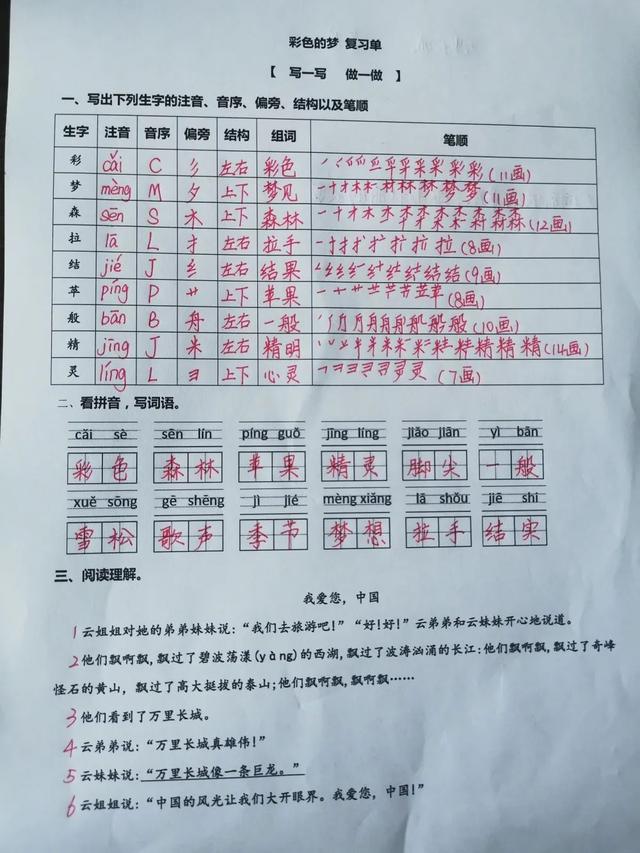 彩色的梦 复习单
【 写一写 做一做 】
一、写出下列生字的注音、音序、偏旁、结构以及笔顺
生字 注音 音序 偏旁 结构 组词 笔顺
彩 cǎi C 彡 左右 彩色 (11画)
梦 mèng M 夕 上下 梦见 (11画)
森 sēn S 木 上下 森林 (12画)
拉 lā L 扌 左右 拉手 (8画)
结 jié J 纟 左右 结果 (9画)
苹 píng P 艹 上下 苹果 (8画)
般 bān B 舟 左右 一般 (10画)
精 jīng J 米 左右 精明 (14画)
灵 líng L 彐 上下 心灵 (7画)
二、看拼音，写词语。
cǎi sè sēn lín píng guǒ jīng líng jiǎo jiān yì bān
彩色 森林 苹果 精灵 脚尖 一般
xuě sōng gē shēng jì jié mèng xiǎng lā shǒu jiē shi
雪松 歌声 季节 梦想 拉手 结实
三、阅读理解。
我爱您，中国
1 云姐姐对她的弟弟妹妹说：“我们去旅游吧！”“好！好！”云弟弟和云妹妹开心地说道。
2 他们飘啊飘，飘过了碧波荡漾(yàng)的西湖，飘过了波涛汹涌的长江；他们飘啊飘，飘过了奇峰
怪石的黄山，飘过了高大挺拔的泰山；他们飘啊飘，飘啊飘……
3 他们看到了万里长城。
4 云弟弟说：“万里长城真雄伟！”
5 云妹妹说：“万里长城像一条巨龙。”
6 云姐姐说：“中国的风光让我们大开眼界。我爱您，中国！”